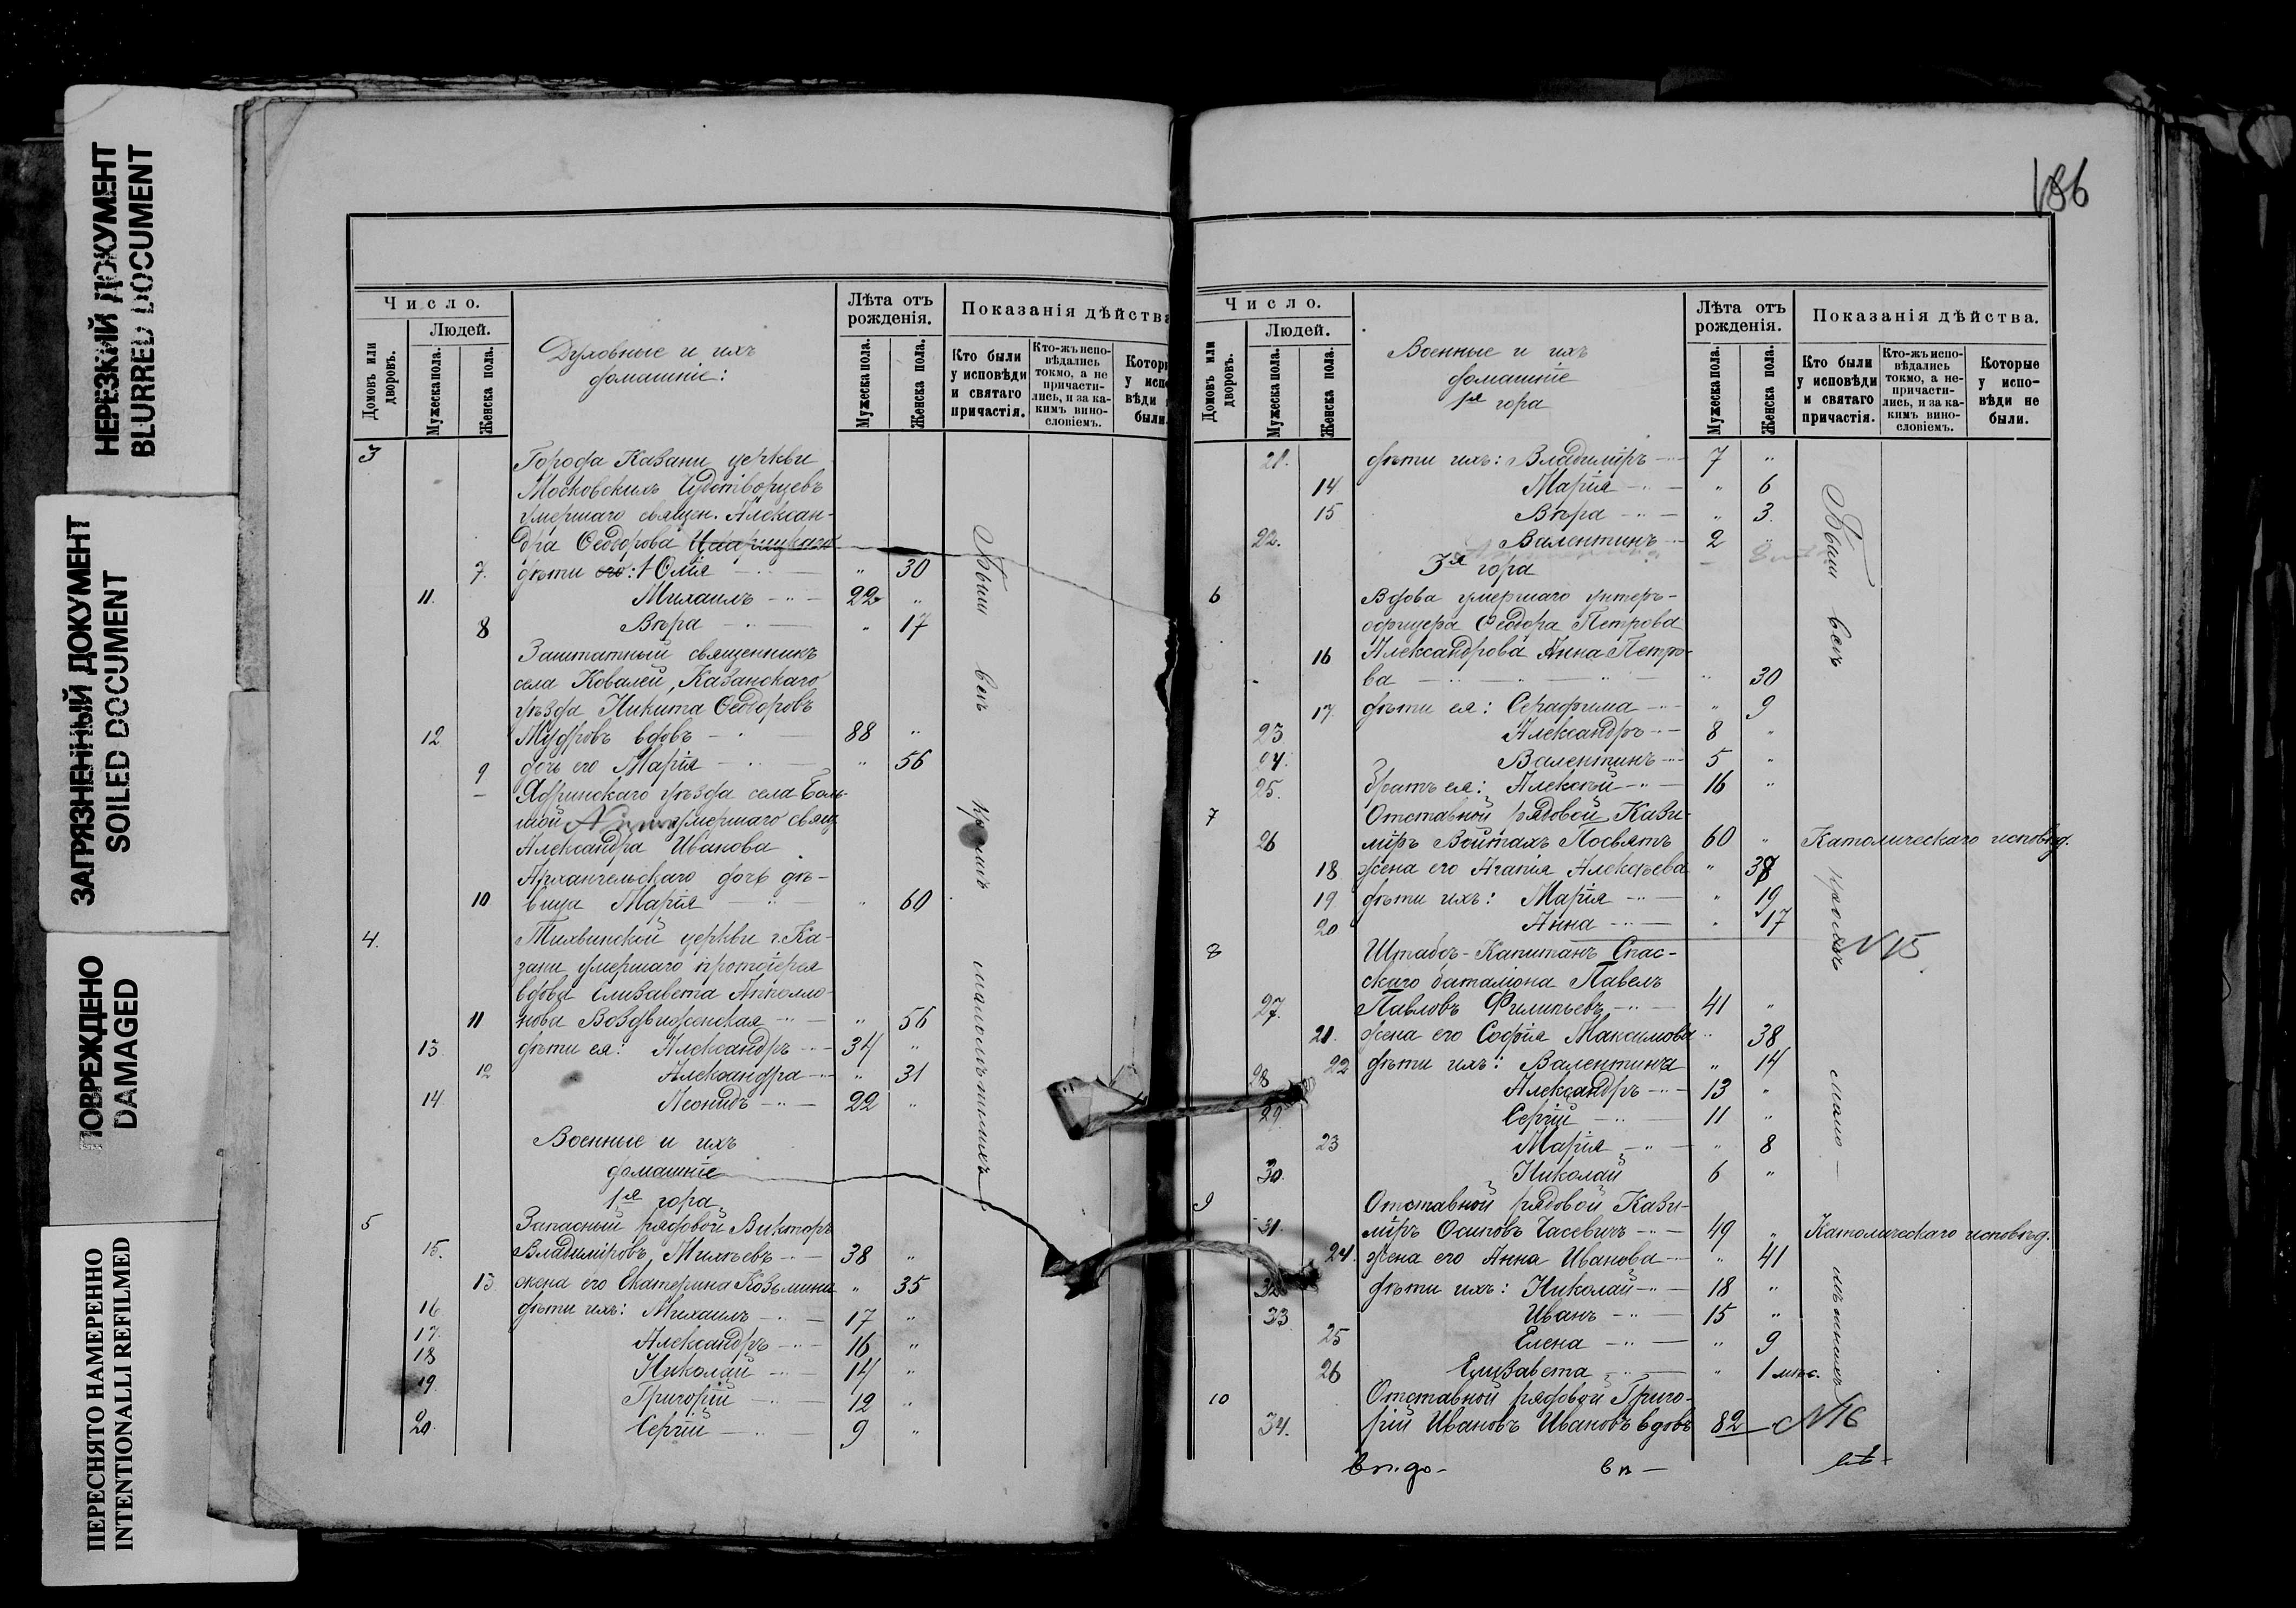 НЕРЕЗКИЙ ДОКУМЕНТ
BLURRED DOCUMENT
ЗАГРЯЗНЕННЫЙ ДОКУМЕНТ
SOILED DOCUMENT
ПОВРЕЖДЕНО
DAMAGED
ПЕРЕСНЯТО НАМЕРЕННО
INTENTIONALLI REFILMED
Число.
Людей.
Домовъ или дворовъ.
Мужеска пола.
Женска пола.
Духовные и ихъ
домашніе:
Лѣта отъ
рожденія.
Мужеска пола.
Женска пола.
Показанія дѣйства
Кто были
у исповѣди
и святаго
причастія.
Кто-жъ испо-
вѣдались
токмо, а не
причасти-
лись, и за ка-
кимъ вино-
словіемъ.
Котор
у исп
вѣди
были.
3 Города Казани церкви
Московскихъ Чудотворцевъ
умершаго священ. Алексан-
дра Ѳеодорова
7. дѣти его: Юлія " 30
11. Михаилъ 22 "
8 Вѣра " 17
Заштатный священникъ
села Ковалей, Казанскаго
уѣзда Никита Ѳеодоровъ
12 Мудровъ вдовъ 88 "
9 дочь его Марія " 56
Ядринскаго уѣзда села Боль-
шой умершаго свящ.
Александра Иванова
Архангельскаго дочь дѣ-
10 вица Марія " 60
4. Тихвинской церкви г. Ка-
зани умершаго протоіерея
вдова Елизавета Апполло-
11 нова Воздвиженская " 56
13 дѣти ея: Александръ 34 "
12 Александра " 31
14 Леонидъ 22 "
Военные и ихъ
домашніе
1я гора
5 Запасный рядовой Викторъ
15. Владиміровъ Михѣевъ 38 "
13 жена его Екатерина Козьмина " 35
16 дѣти ихъ: Михаилъ 17 "
17. Александръ 16 "
18 Николай 14 "
19. Григорій 12 "
20. Сергій 9 "
Были всѣ кромѣ малолѣтнихъ
186
Число.
Людей.
Домовъ или дворовъ.
Мужеска пола.
Женска пола.
Военные и ихъ
домашніе
1я гора
Лѣта отъ
рожденія.
Мужеска пола.
Женска пола.
Показанія дѣйства.
Кто были
у исповѣди
и святаго
причастія.
Кто-жъ испо-
вѣдались
токмо, а не-
причасти-
лись, и за ка-
кимъ вино-
словіемъ.
Которые
у испо-
вѣди не
были.
21. дѣти ихъ: Владиміръ 7 "
14 Марія " 6
15 Вѣра " 3
22. Валентинъ 2 "
3я гора
6 Вдова умершаго унтеръ-
офицера Ѳеодора Петрова
16 Александрова Анна Петро-
ва " 30
17. дѣти ея: Серафима " 9
23 Александръ 8 "
24. Валентинъ 5 "
25. братъ ея: Алексѣй 16 "
7 Отставной рядовой Кази-
26 міръ Войтахъ Посвятъ 60 " Католическаго исповѣд.
18 жена его Агапія Алексѣева " 37
19 дѣти ихъ: Марія " 19
20 Анна " 17
8 Штабсъ-Капитанъ Спас- N 15
скаго баталіона Павелъ
27. Павловъ Филипьевъ 41 "
21. жена его Софія Максимова " 38
28 22 дѣти ихъ: Валентина " 14
Александръ 13 "
29 Сергій 11 "
23 Марія " 8
30. Николай 6 "
9 Отставной рядовой Кази-
31. міръ Осиповъ Часевичъ 49 " Католическаго исповѣд.
24. жена его Анна Иванова " 41
32 дѣти ихъ: Николай 18 "
33 Иванъ 15 "
25 Елена " 9
26 Елизавета " 1 мѣс.
10 Отставной рядовой Григо-
34. рій Ивановъ Ивановъ вдовъ 82 N 16
Были всѣ кромѣ мало-лѣтнихъ